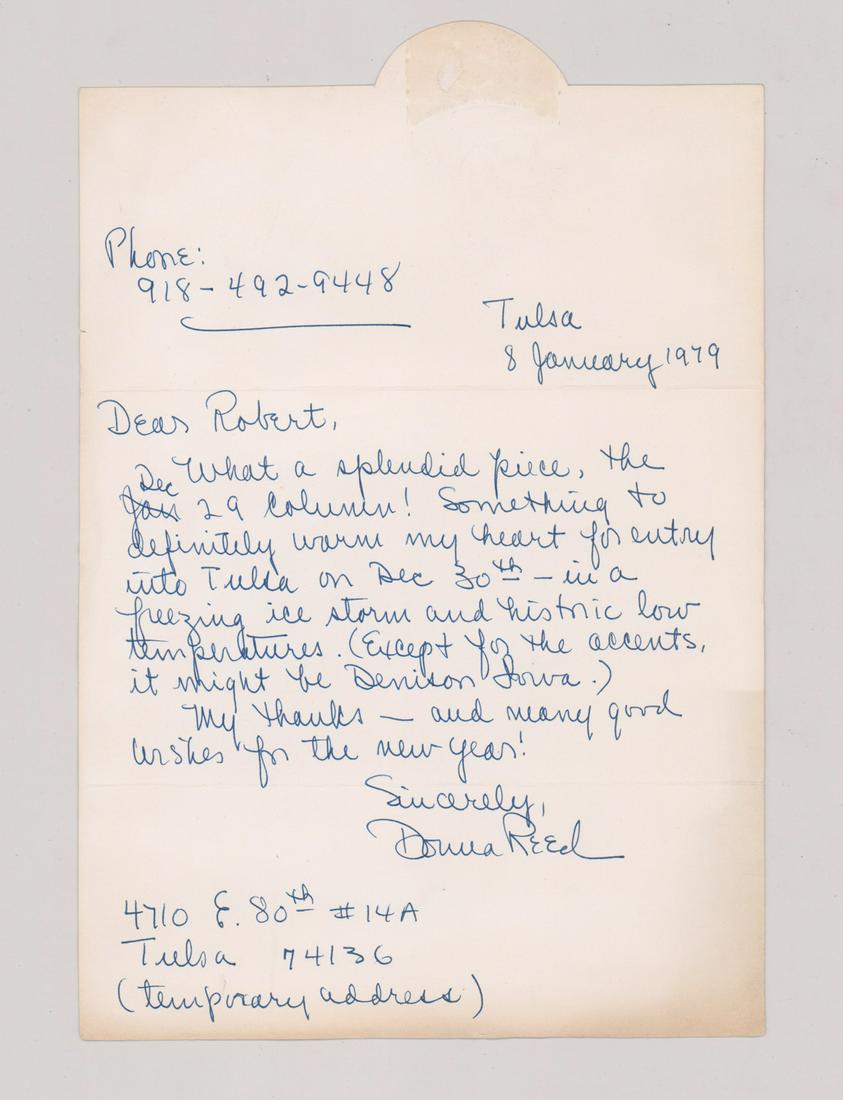 Phone:
918-492-9448
Tulsa
8 January 1979
Dear Robert,
What a splendid piece, the
Dec
Jan 29 column! Something to
definitely warm my heart for entry
into Tulsa on Dec 30th — in a
freezing ice storm and historic low
temperatures. (Except for the accents,
it might be Denison Iowa.)
My thanks — and many good
wishes for the new year!
Sincerely,
Donna Reed
4710 E. 80th #14A
Tulsa 74136
(temporary address)